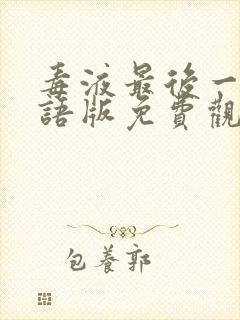 毒液最後一
語版免費觀
包養郭